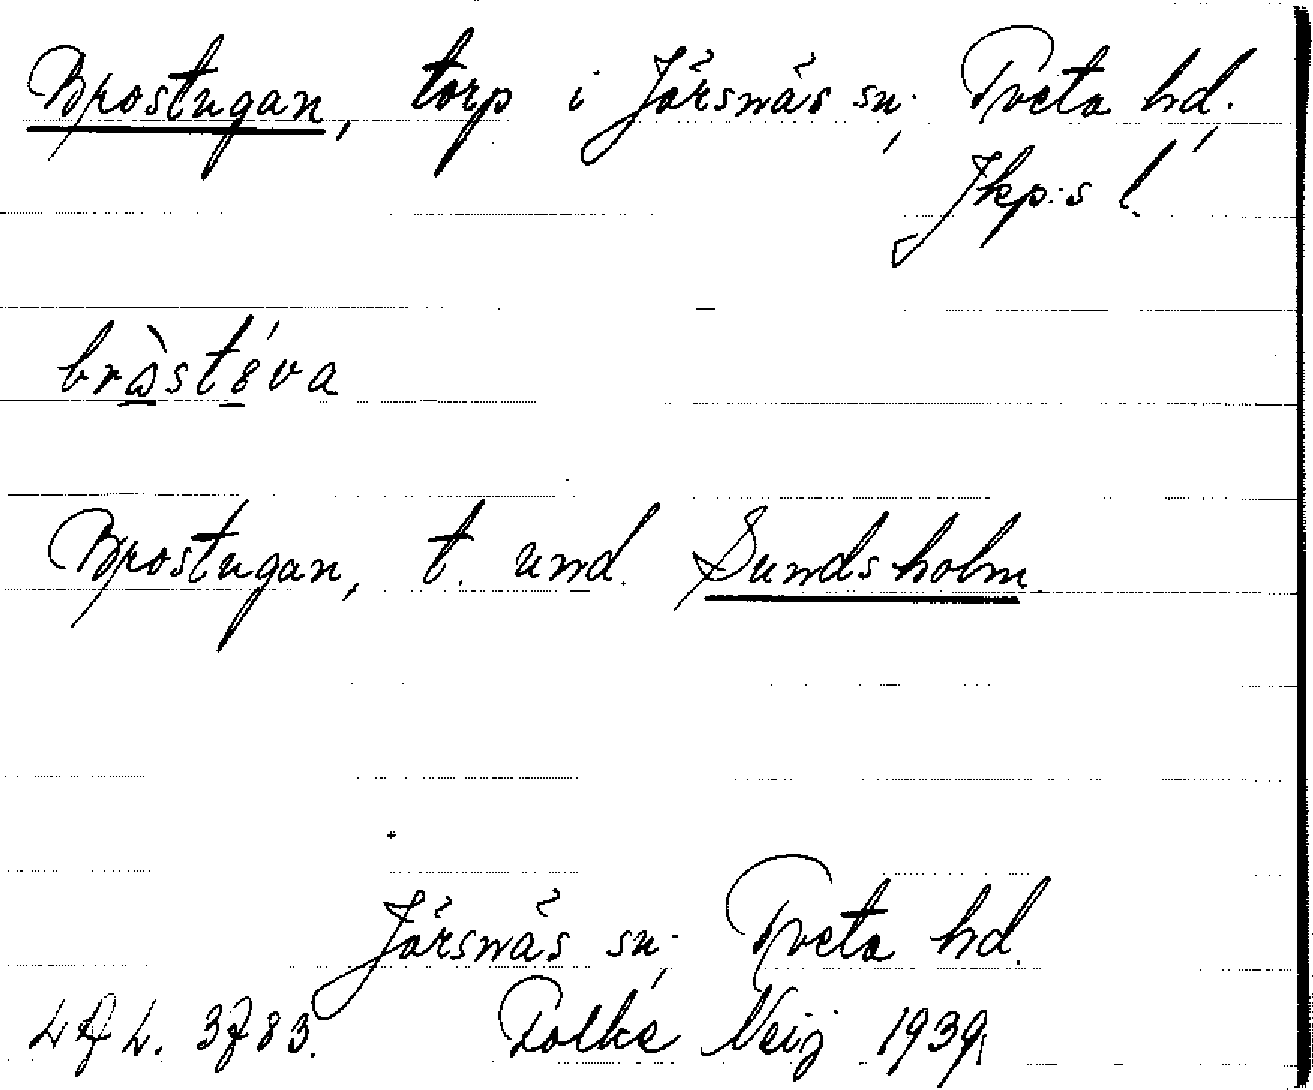 Brostugan, torp i Järsnäs sn; Tveta hd,
Jkp:s l.
Brostugan, t. und. Sundsholm
Järsnäs sn; Tveta hd.
3783. Folke Neij 1939.